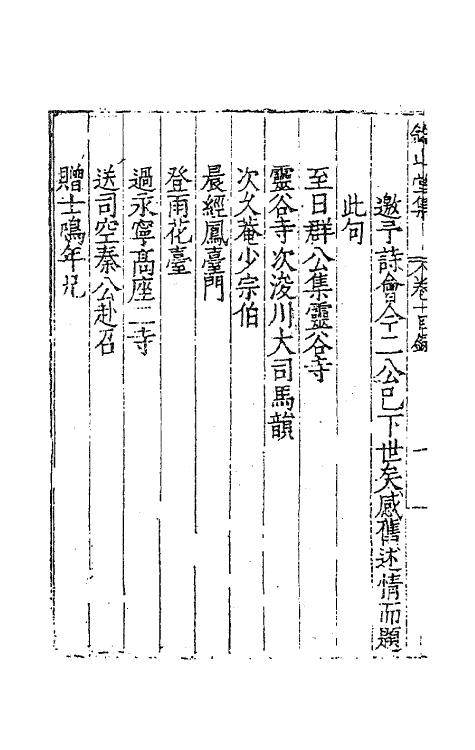 邀予詩會今二公已下世矣感舊述情而題
此句
至日群公集靈谷寺
靈谷寺次浚川大司馬韻
次久菴少宗伯
晨經鳳臺門
登雨花臺
過永寧高座二寺
送司空秦公赴召
贈士鳴年兄